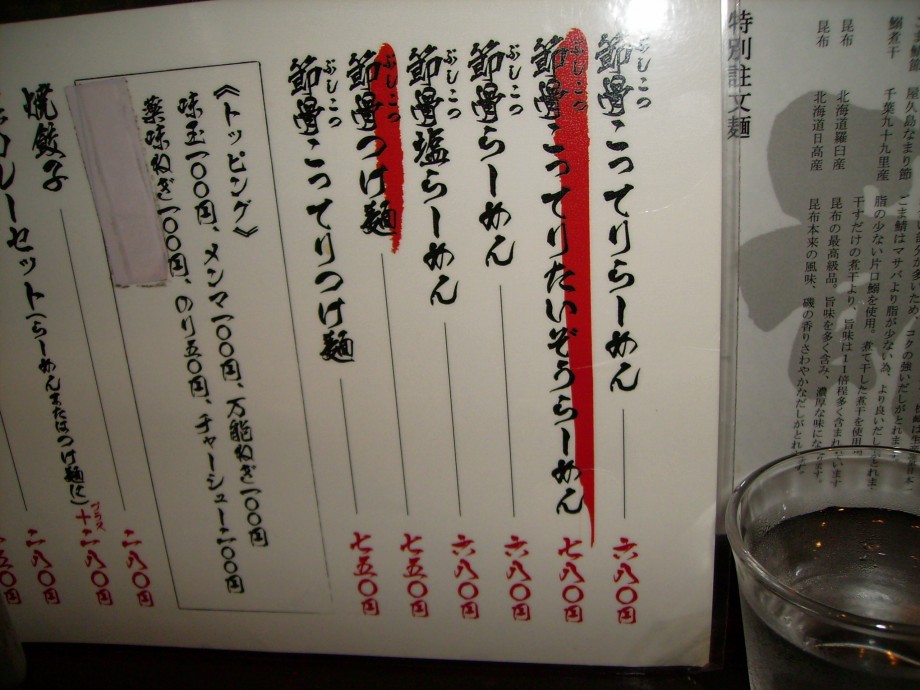 節骨こってりらーめん 六八〇円
ぶしこつ
節骨こってりたいぞうらーめん 七八〇円
ぶしこつ
節骨らーめん 六八〇円
ぶしこつ
節骨塩らーめん 六八〇円
ぶしこつ
節骨つけ麺 七五〇円
ぶしこつ
節骨こってりつけ麺 七五〇円
ぶしこつ
《トッピング》
味玉一〇〇円、メンマ一〇〇円、万能ねぎ一〇〇円
薬味ねぎ一〇〇円、のり五〇円、チャーシュー二〇〇円
二八〇円
焼餃子
カレーセット(らーめんまたはつけ麺に)プラス+二八〇円
二八〇円
五〇円
鰯煮干 千葉九十九里産
屋久島なまり節
昆布 北海道羅臼産
昆布 北海道日高産
脂の少ない片口鰯を使用。煮て干した煮干を使用
干すだけの煮干より、旨味は11倍程多く含まれています
昆布の最高級品、旨味を多く含み、濃厚な味になります。
昆布本来の風味、磯の香りさわやかなだしがとれます。
特別註文麺